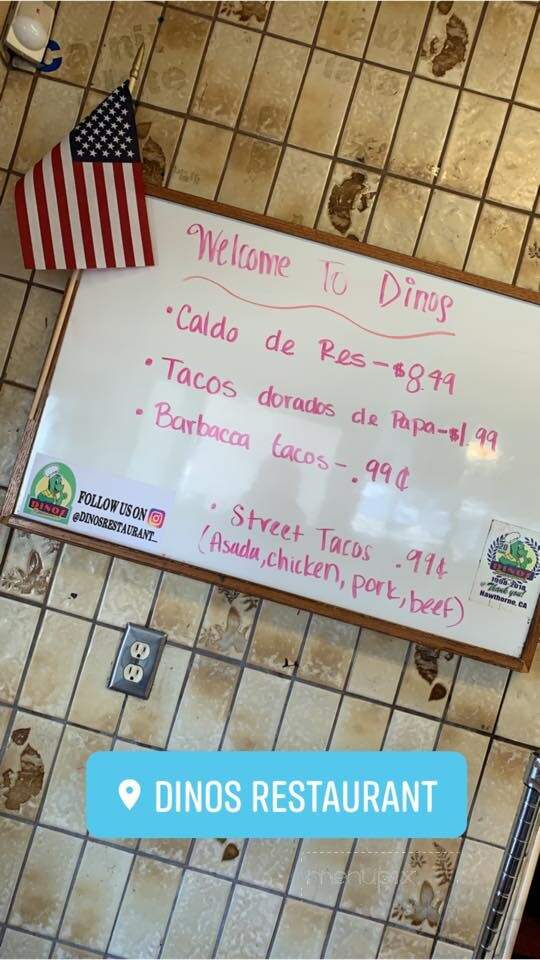 Welcome To Dinos
• Caldo de Res - $8.49
• Tacos dorados de Papa - $1.99
• Barbacoa tacos - .99¢
• Street Tacos .99¢
(Asada, chicken, pork, beef)
DINOS
FOLLOW US ON
@DINOSRESTAURANT_
DINOS
Thank you!
Hawthorne, CA
DINOS RESTAURANT
menupix